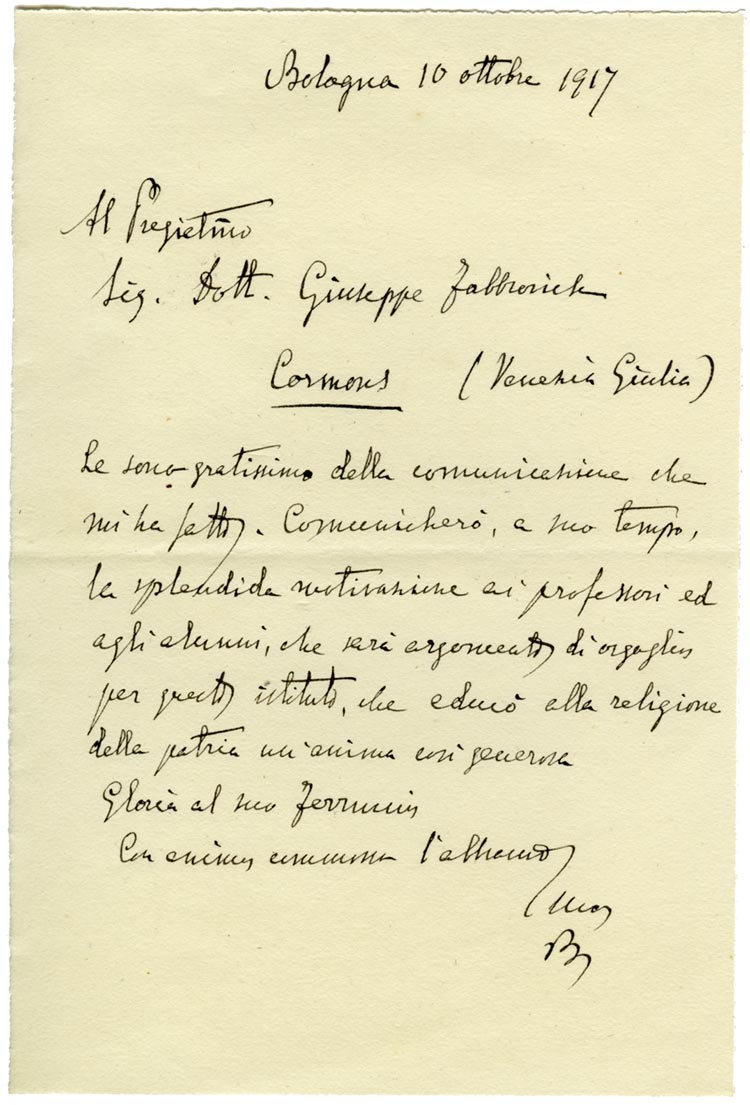 Bologna 10 ottobre 1917
Al Pregiatmo
Sig. Dott. Giuseppe Fabbrovich
Cormons (Venezia Giulia)
Le sono gratissimo della comunicazione che
mi ha fatto. Comunicherò, a suo tempo,
la splendida motivazione ai professori ed
agli alunni, che sarà argomento di orgoglio
per questo istituto, che educò alla religione
della patria un'anima così generosa
Gloria al suo Ferruccio
Con animo commosso l'abbraccio
Suo